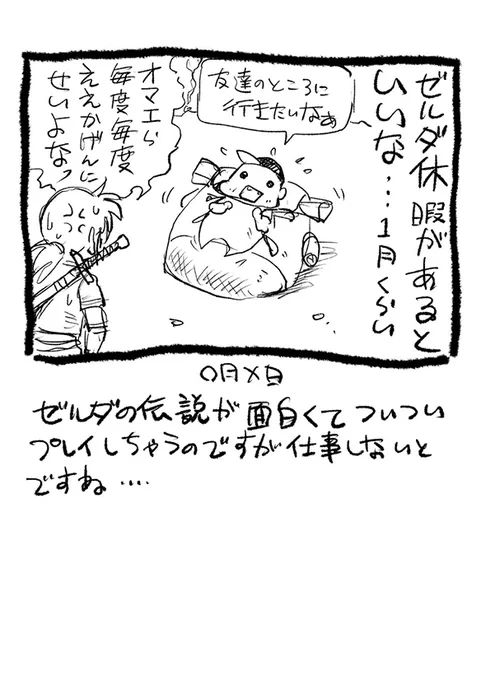 ゼルダ休暇があると
いいな…1月くらい
友達のところに
行きたいなぁ
オマエら
毎度毎度
ええかげんに
せいよなっ
〇月×日
ゼルダの伝説が面白くてついつい
プレイしちゃうのですが仕事しないと
ですね‥‥